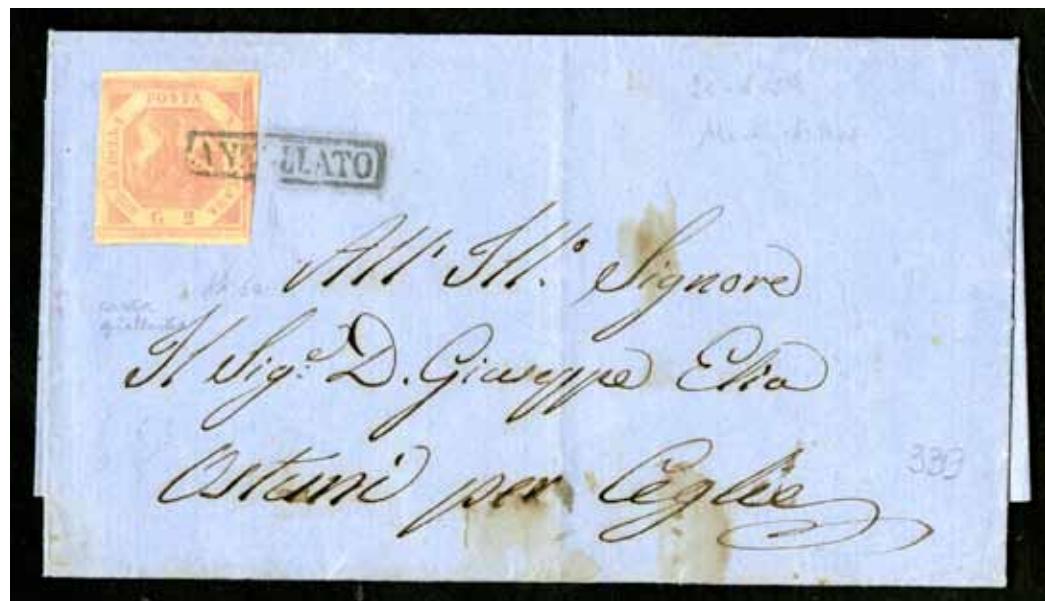 POSTA
G. 2
ANNULLATO
All' Ill.º Signore
Il Sig.e D. Giuseppe Elia
Ostuni per Ceglie
carta
333